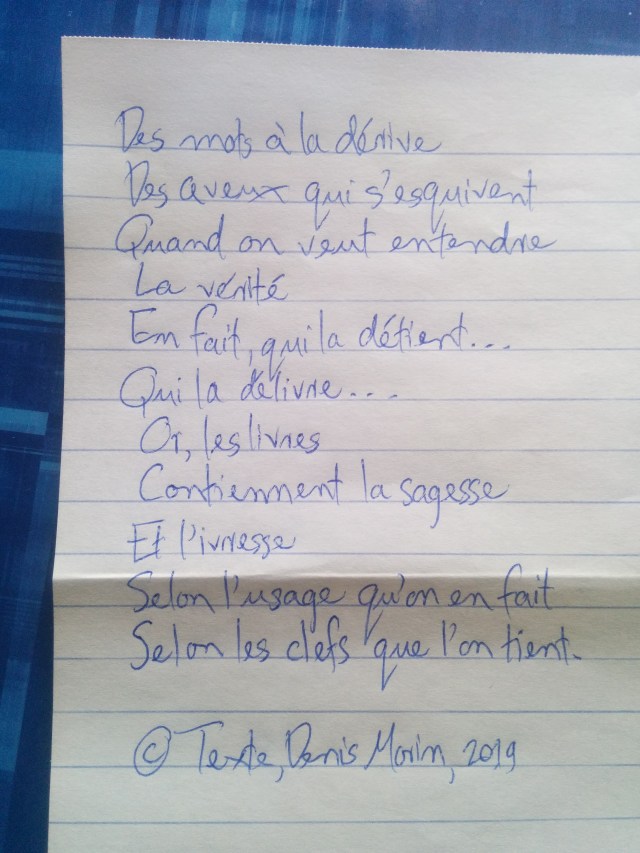 Des mots à la dérive
Des aveux qui s'esquivent
Quand on veut entendre
La vérité
En fait, qui la détient...
Qui la délivre...
Or, les livres
Contiennent la sagesse
Et l'ivresse
Selon l'usage qu'on en fait
Selon les clefs que l'on tient.
© Texte, Denis Morin, 2019